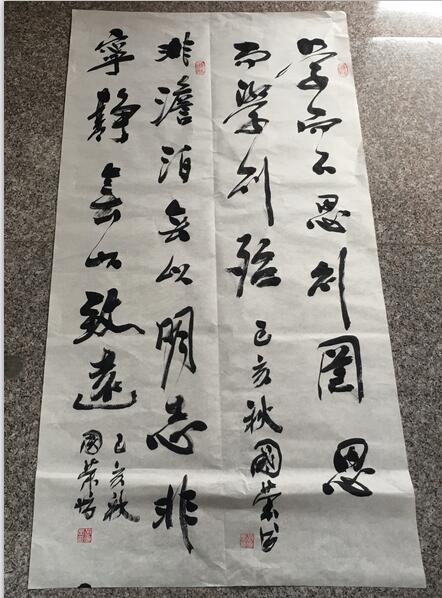 學而不思則罔思
而學則殆 己亥秋國榮书
非澹泊無以明志非
寧靜無以致遠 己亥秋
國榮